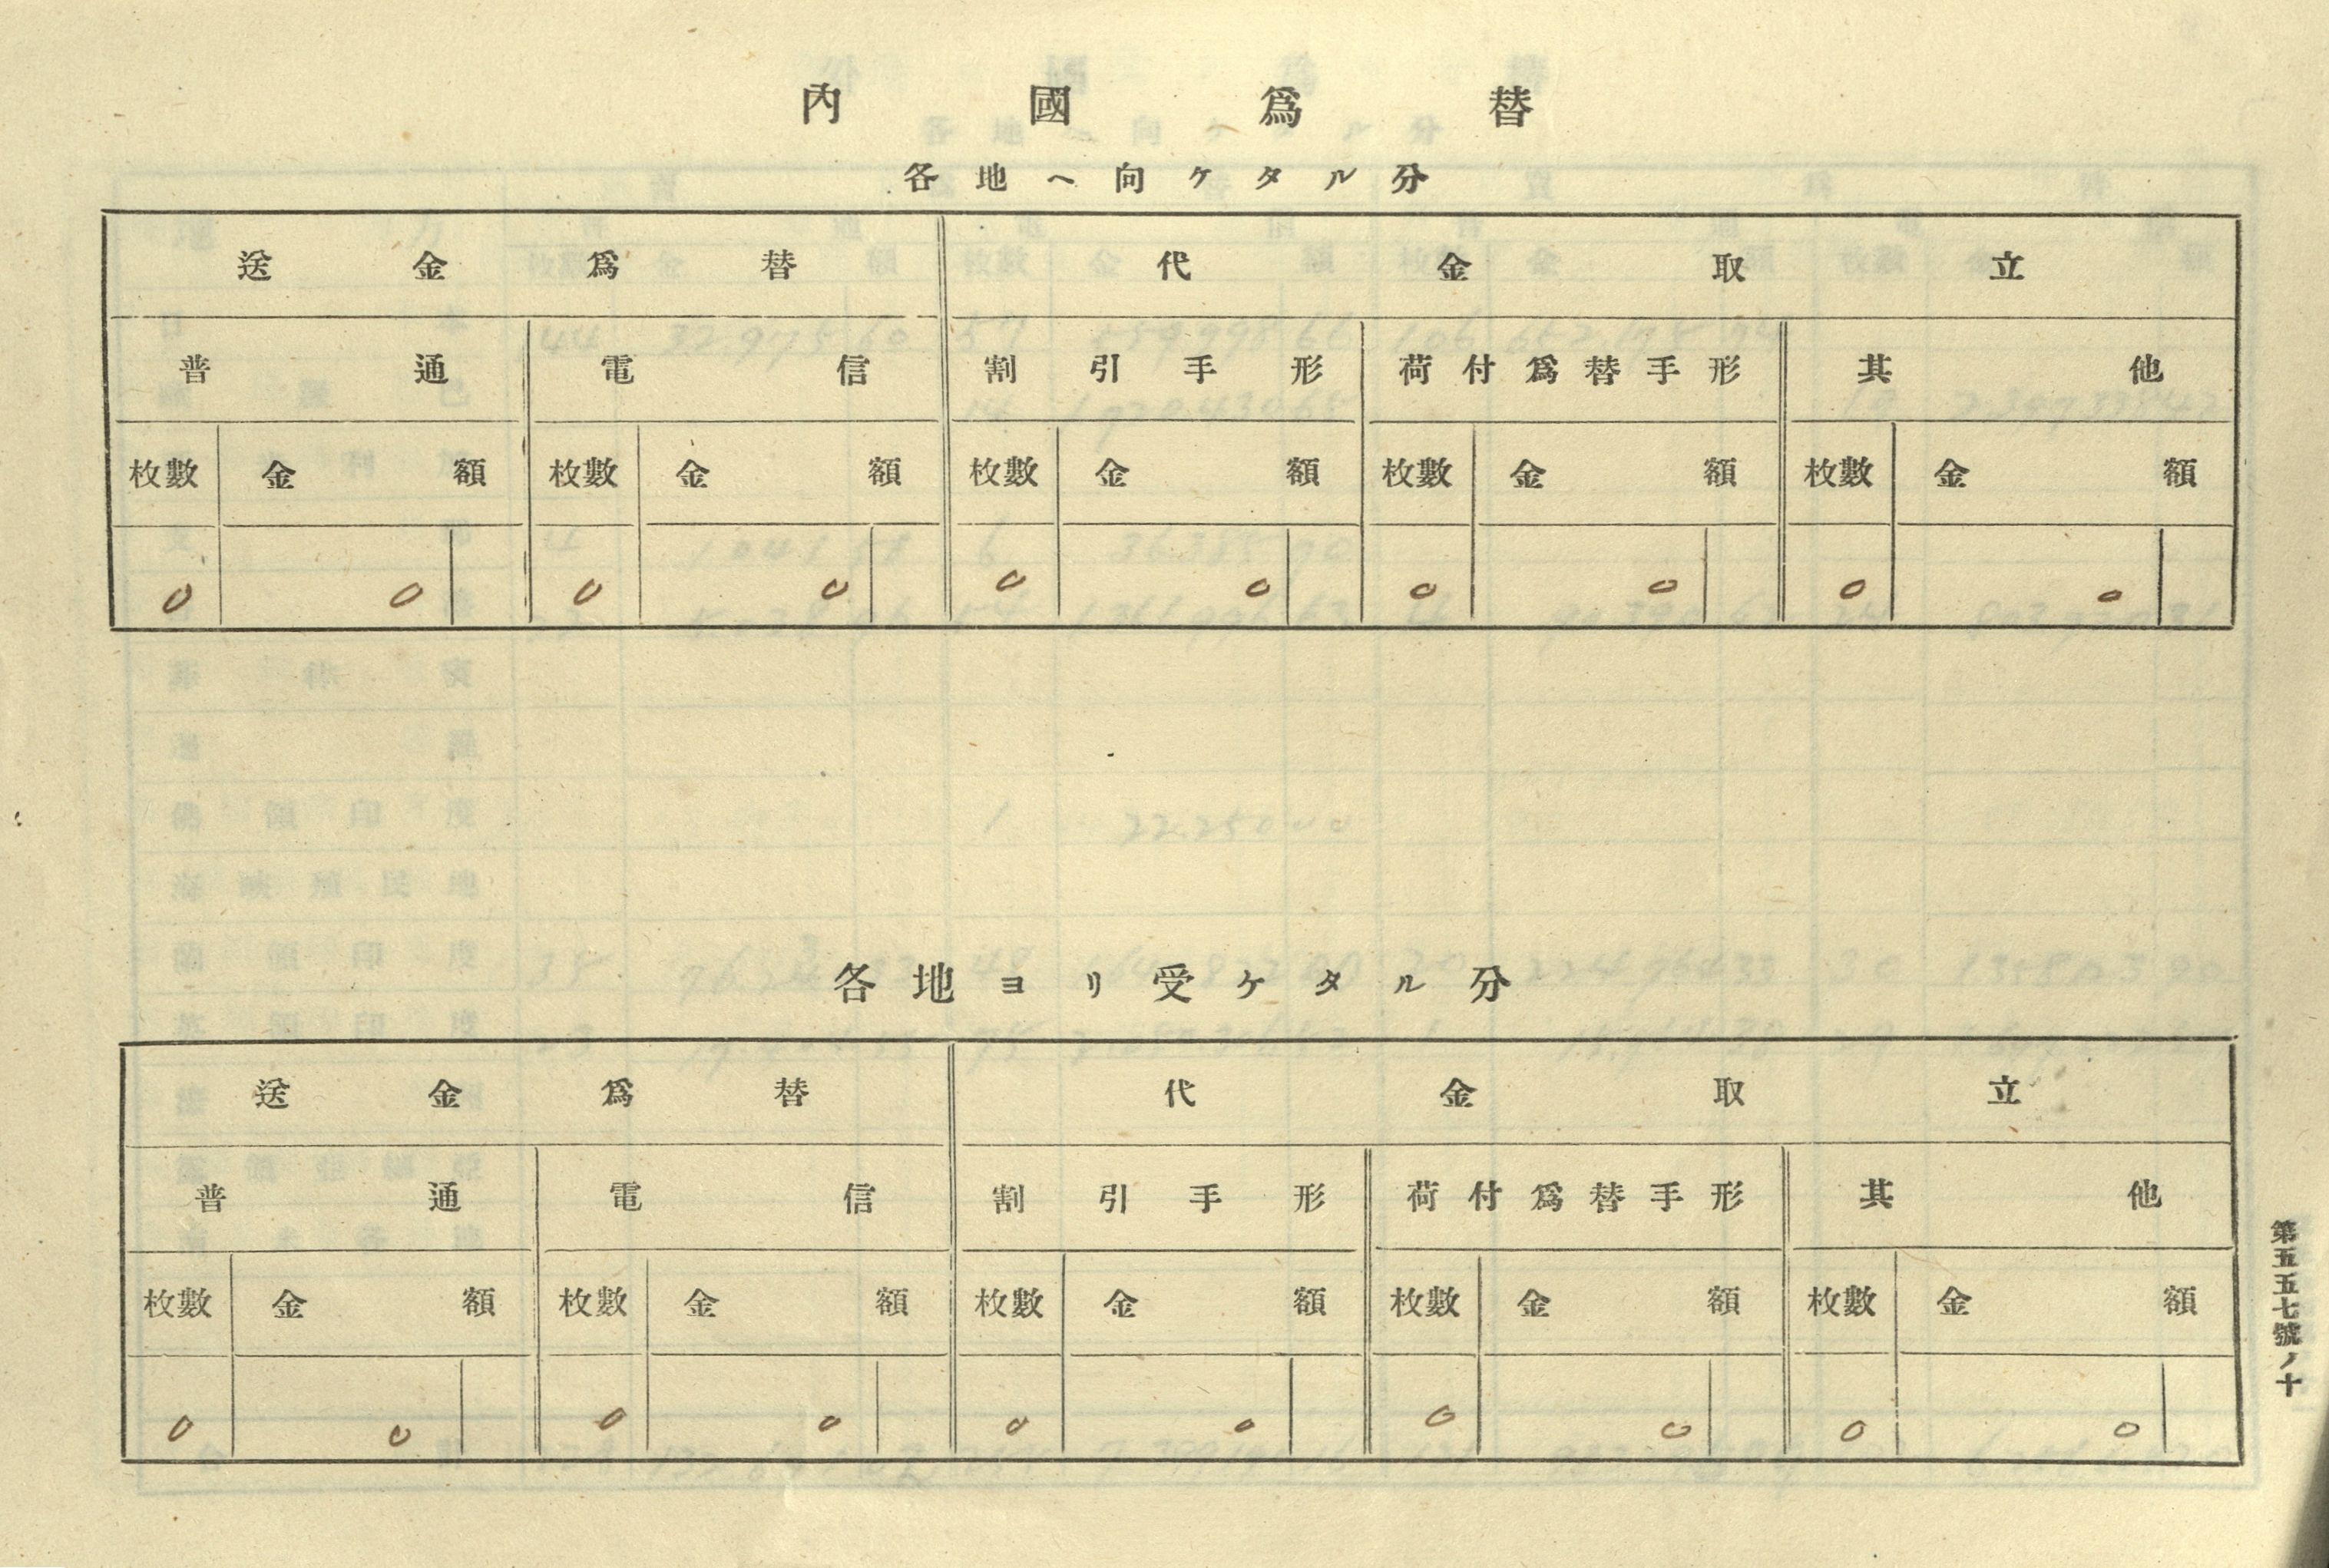 內國爲替
各地ヘ向ケタル分
送金爲替 代金取立
普通 電信 割引手形 荷付爲替手形 其他
枚數 金額 枚數 金額 枚數 金額 枚數 金額 枚數 金額
0 0 0 0 0 0 0 0 0 0
各地ヨリ受ケタル分
送金爲替 代金取立
普通 電信 割引手形 荷付爲替手形 其他
枚數 金額 枚數 金額 枚數 金額 枚數 金額 枚數 金額
0 0 0 0 0 0 0 0 0 0
第五五七號ノ十